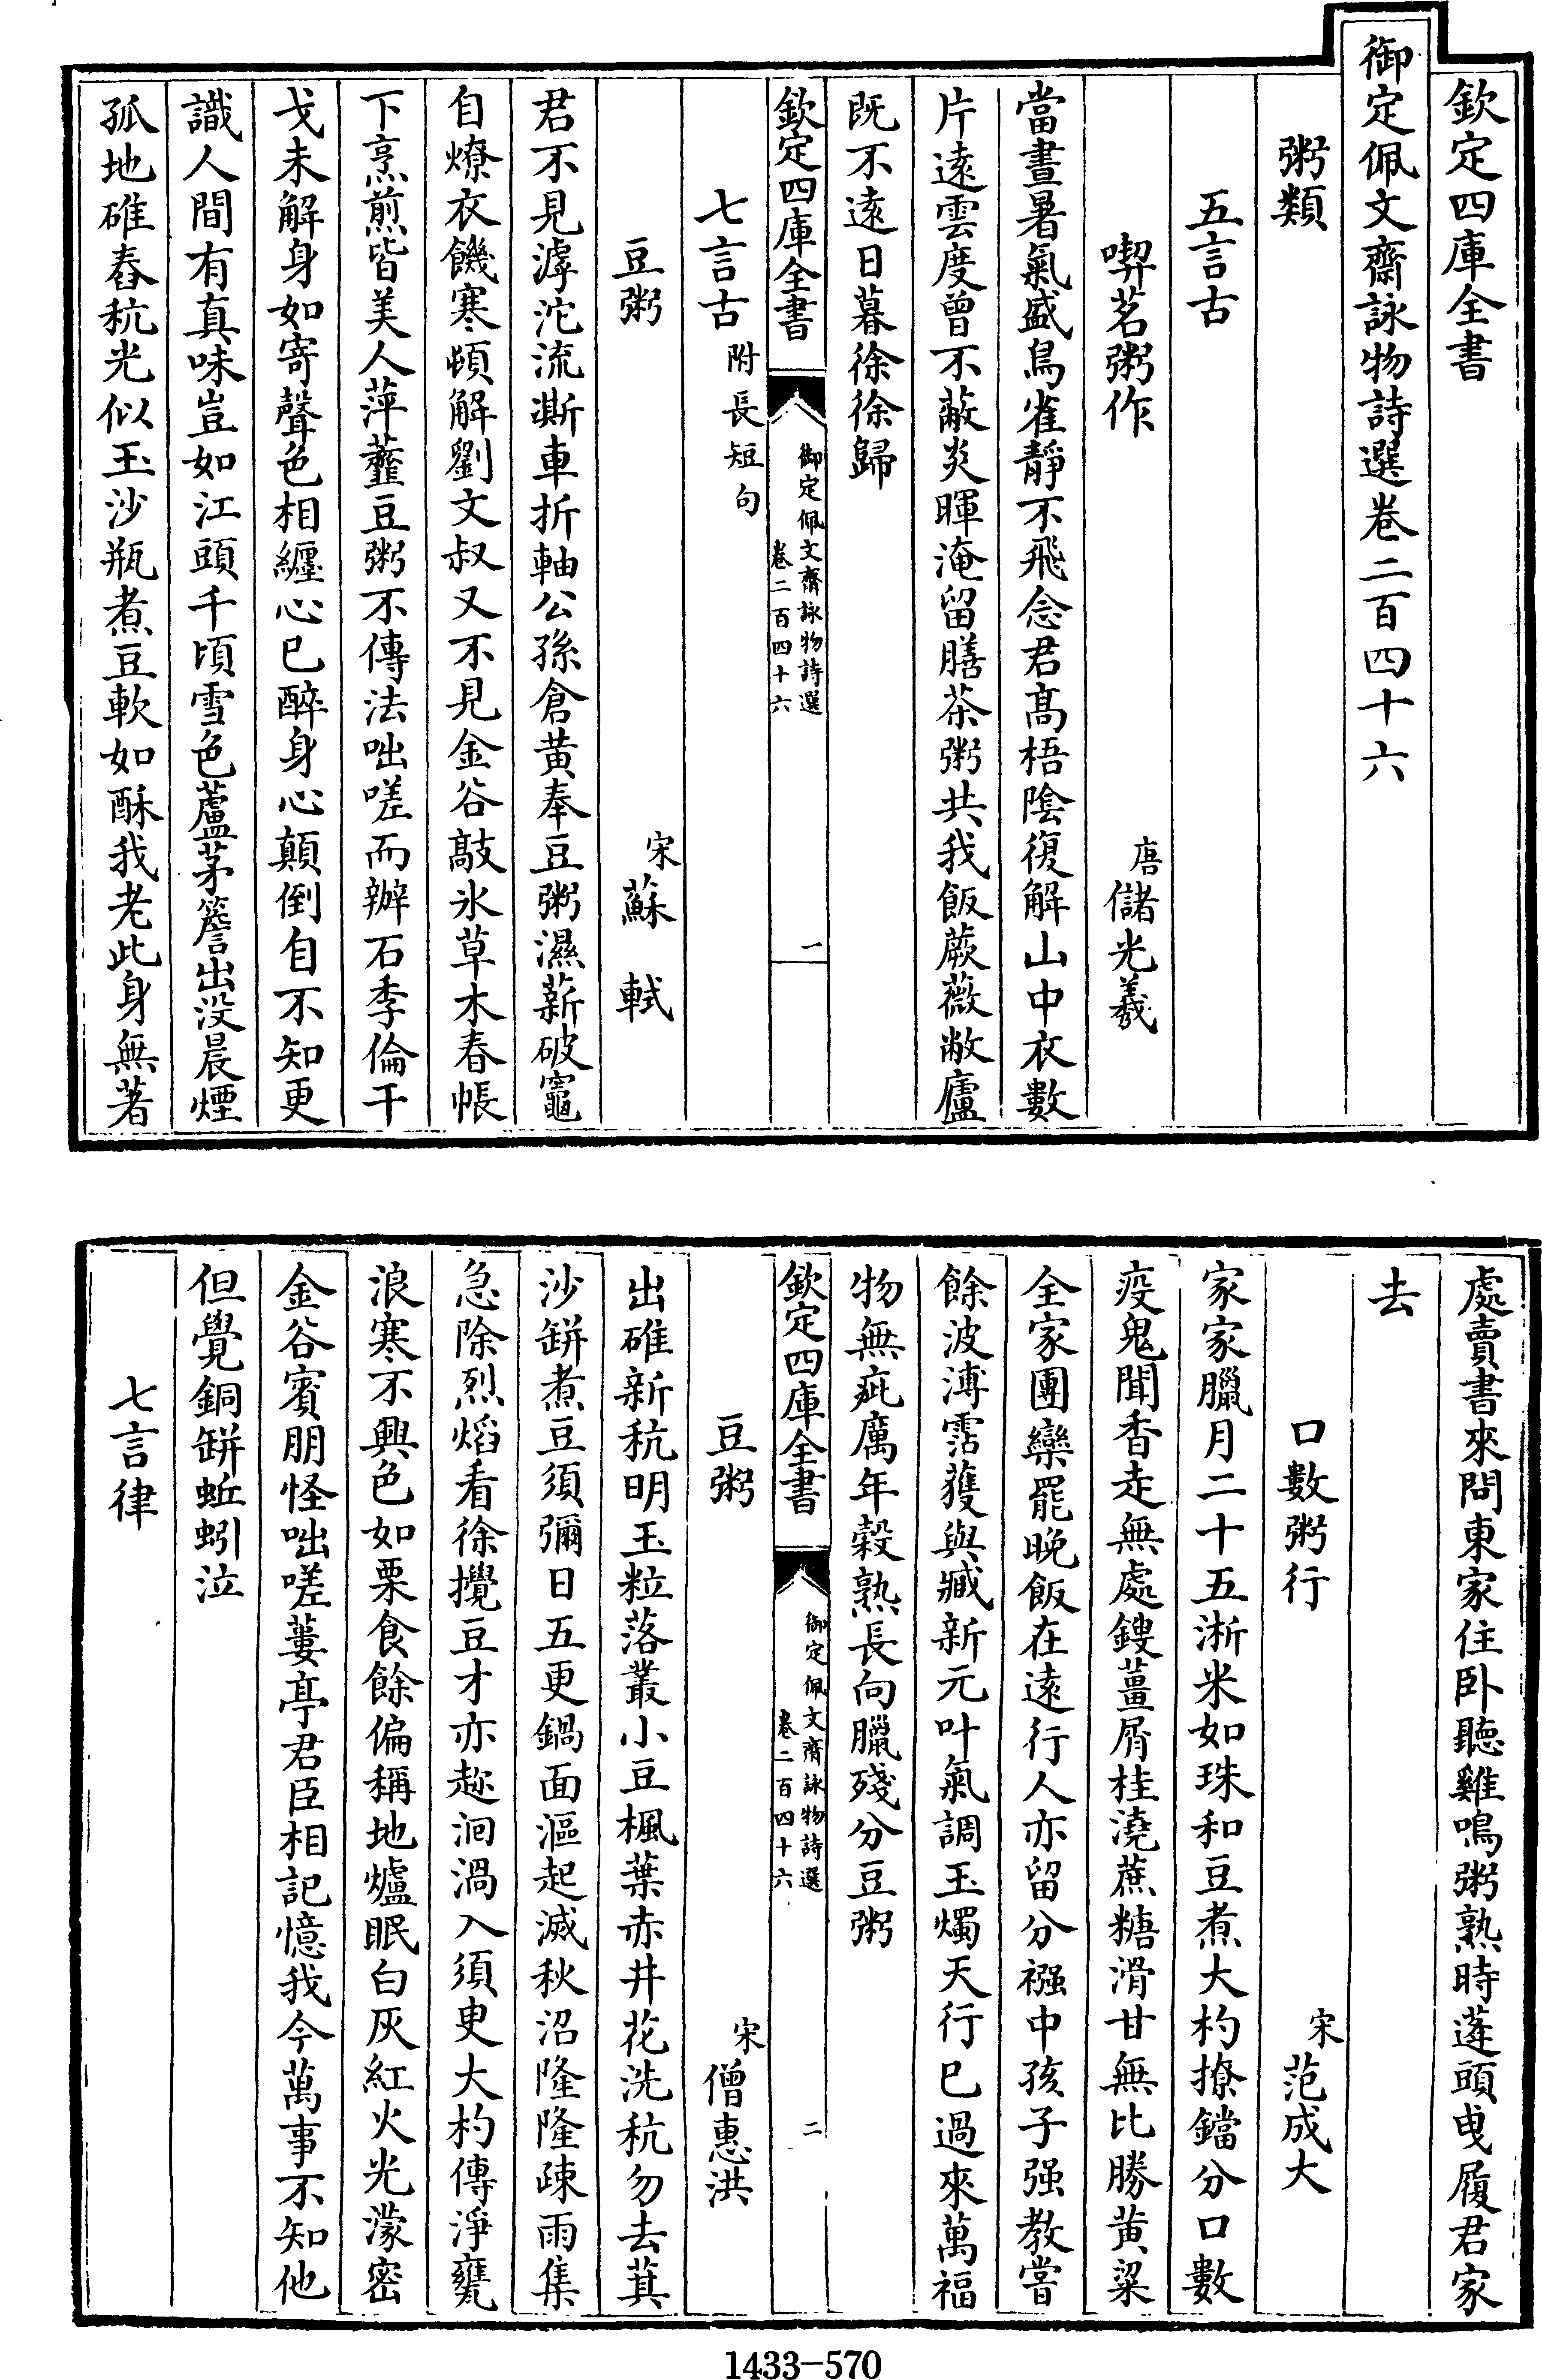 欽定四庫全書
御定佩文齋詠物詩選卷二百四十六
粥類
五言古
喫茗粥作　唐儲光羲
當晝暑氣盛鳥雀靜不飛念君髙梧陰復解山中衣數
片逺雲度曾不蔽炎暉淹留膳茶粥共我飯蕨薇敝廬
既不逺日暮徐徐歸
欽定四庫全書　御定佩文齋詠物詩選卷二百四十六　一
七言古附長短句
豆粥　宋蘇軾
君不見滹沱流澌車折軸公孫倉黄奉豆粥濕薪破竈
自燎衣饑寒頓解劉文叔又不見金谷敲氷草木春帳
下烹煎皆美人萍虀豆粥不傳法咄嗟而辦石季倫干
戈未解身如寄聲色相纏心已醉身心顛倒自不知更
識人間有真味豈如江頭千頃雪色蘆茅簷出没晨煙
孤地碓舂秔光似玉沙瓶煮豆軟如酥我老此身無著
處賣書來問東家住卧聽雞鳴粥熟時蓬頭曵履君家
去
口數粥行　宋范成大
家家臘月二十五淅米如珠和豆煮大杓撩鐺分口數
疫鬼聞香走無處鎪薑屑桂澆蔗糖滑甘無比勝黄粱
全家團欒罷晚飯在逺行人亦留分襁中孩子强教嘗
餘波溥霑獲與臧新元叶氣調玉燭天行已過來萬福
物無疵厲年穀熟長向臘殘分豆粥
欽定四庫全書　御定佩文齋詠物詩選卷二百四十六　二
豆粥　宋僧惠洪
出碓新秔明玉粒落叢小豆楓葉赤井花洗秔勿去萁
沙缾煮豆須彌日五更鍋面漚起滅秋沼隆隆疎雨集
急除烈焰看徐攪豆才亦趂洄渦入須吏大杓傳淨甕
浪寒不興色如栗食餘偏稱地爐眠白灰紅火光濛密
金谷賓朋怪咄嗟蔞亭君臣相記憶我今萬事不知他
但覺銅缾蚯蚓泣
七言律
1433-570